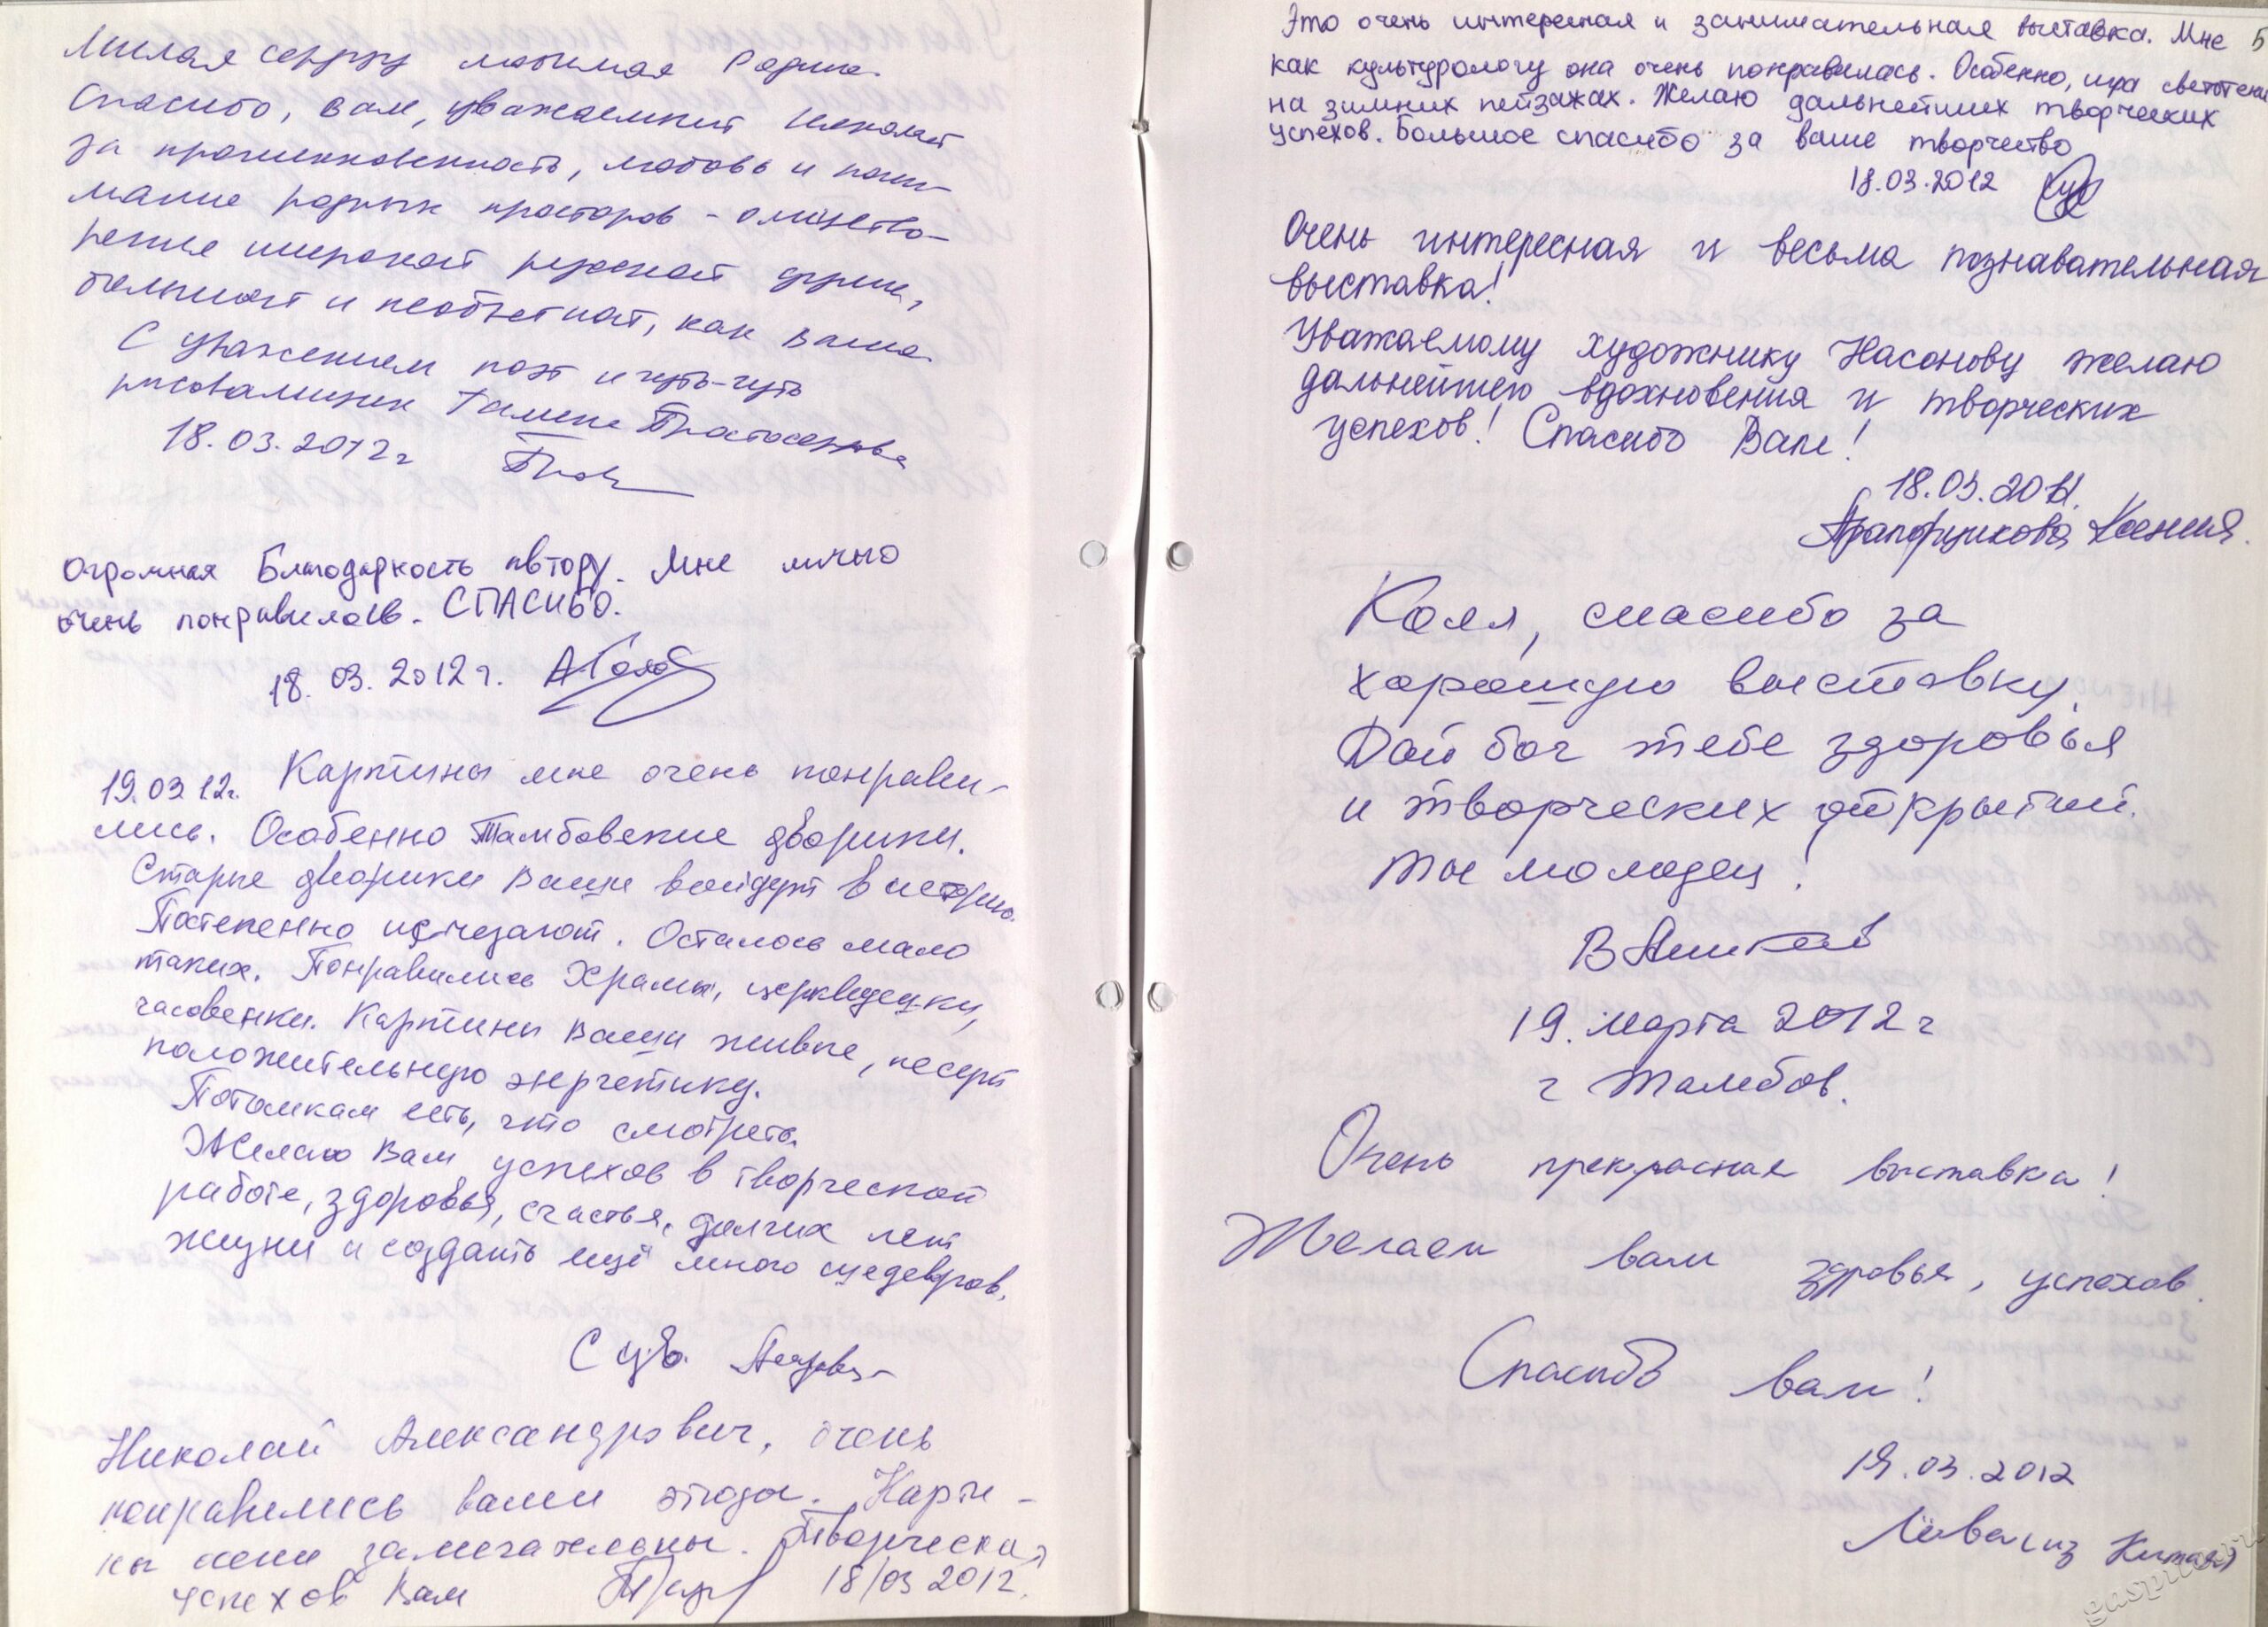 Милая сердцу любимая Родина.
Спасибо, Вам, уважаемый Николай
за проникновенность, любовь и пони-
мание родных просторов - олицетво-
рение широкой русской души,
большой и необъятной, как Ваша.
С уважением поэт и чуть-чуть
рисовальщик Галина
18.03.2012 г
Огромная Благодарность автору. Мне лично
очень понравилось. СПАСИБО.
18. 03. 2012 г.
19.03 12г. Картины мне очень понрави-
лись. Особенно Тамбовские дворики.
Старые дворики Ваши войдут в историю.
Постепенно исчезают. Осталось мало
таких. Понравились Храмы,
часовенки. Картины Ваши живые, несут
положительную энергетику.
Потомкам есть, что смотреть.
Желаю Вам успехов в творческой
работе, здоровья, счастья, долгих лет
жизни и создать ещё много шедевров.
С ув.
Николай Александрович, очень
понравились ваши этюды. Карти-
ны замечательны. Творческих
успехов Вам 18/03 2012.
Это очень интересная и занимательная выставка. Мне 5
как культурологу она очень понравилась. Особенно, игра светотени
на зимних пейзажах. Желаю дальнейших творческих
успехов. Большое спасибо за ваше творчество
18.03.2012
Очень интересная и весьма познавательная
выставка!
Уважаемому художнику Насонову желаю
дальнейшего вдохновения и творческих
успехов! Спасибо Вам!
18.03.2012.
Прапорщикова Ксения.
Коля, спасибо за
хорошую выставку.
Дай бог тебе здоровья
и творческих открытий.
Ты молодец!
19. марта 2012 г
г Тамбов.
Очень прекрасная выставка!
Желаем вам здоровья, успехов.
Спасибо вам!
19.03.2012
(из Китая)